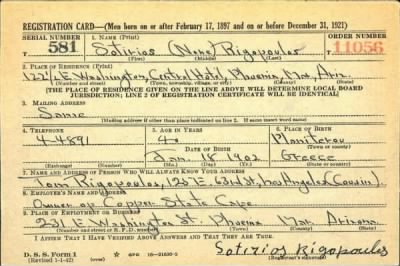 REGISTRATION CARD—(Men born on or after February 17, 1897 and on or before December 31, 1921)
SERIAL NUMBER 1. NAME (Print) ORDER NUMBER
581 Sotirios (None) Rigopoulos 11056
(First) (Middle) (Last)
2. PLACE OF RESIDENCE (Print)
122½ E. Washington, Central Hotel, Phoenix, Mar., Ariz.
(Number and street) (Town, township, village, or city) (County) (State)
[THE PLACE OF RESIDENCE GIVEN ON THE LINE ABOVE WILL DETERMINE LOCAL BOARD
JURISDICTION; LINE 2 OF REGISTRATION CERTIFICATE WILL BE IDENTICAL]
3. MAILING ADDRESS
Same
[Mailing address if other than place indicated on line 2. If same insert word same]
4. TELEPHONE 5. AGE IN YEARS 6. PLACE OF BIRTH
4-4891 40
DATE OF BIRTH (Town or county)
Jan. 18 1902 Greece
(Exchange) (Number) (Mo.) (Day) (Yr.) (State or country)
7. NAME AND ADDRESS OF PERSON WHO WILL ALWAYS KNOW YOUR ADDRESS
Tom Rigopoulos, E. 63rd St., Los Angeles, (Cousin).
8. EMPLOYER'S NAME AND ADDRESS
Owner op Copper State Cafe
9. PLACE OF EMPLOYMENT OR BUSINESS
Washington St. Phoenix Mar. Arizona
(Number and street or R. F. D. number) (Town) (County) (State)
I AFFIRM THAT I HAVE VERIFIED ABOVE ANSWERS AND THAT THEY ARE TRUE.
D. S. S. Form 1 GPO 16—21630-2 Sotirios Rigopoulos
(Revised 1-1-42) (over) (Registrant's signature)